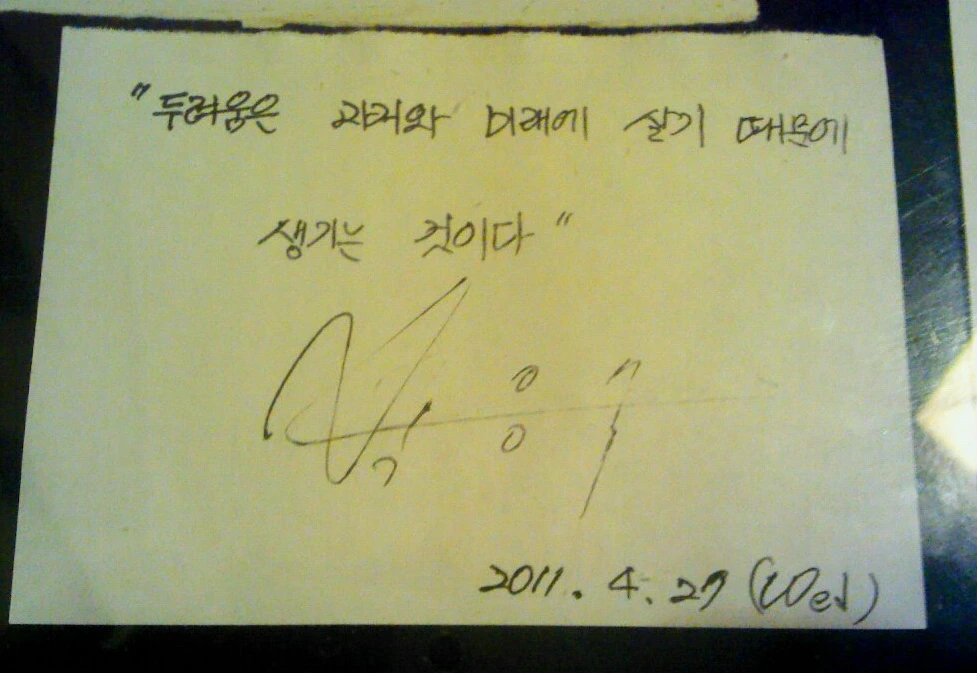 "두려움은 과거와 미래에 살기 때문에
생기는 것이다"
2011. 4. 27 (Wed)